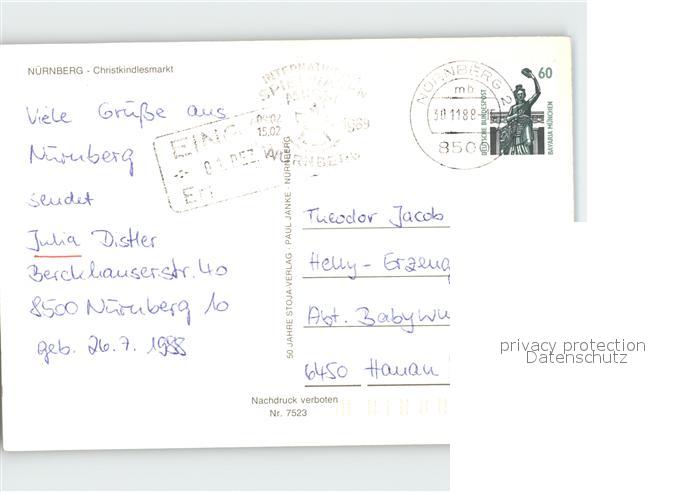 NÜRNBERG - Christkindlesmarkt
Viele Grüße aus
Nürnberg
sendet
Julia Distler
Berckhauserstr. 40
8500 Nürnberg 10
geb. 26.7.1988
EING
01. DEZ.
INTERNATIONALE
09.02
15.02
1989
NÜRNBERG
NÜRNBERG 2
mb
30.11.88
850
60
DEUTSCHE BUNDESPOST
BAVARIA MÜNCHEN
50 JAHRE STOJA-VERLAG · PAUL JANKE · NÜRNBERG
Theodor Jacob
Helly-Erzeug
Abt. Babywu
6450 Hanau
Nachdruck verboten
Nr. 7523
privacy protection
Datenschutz